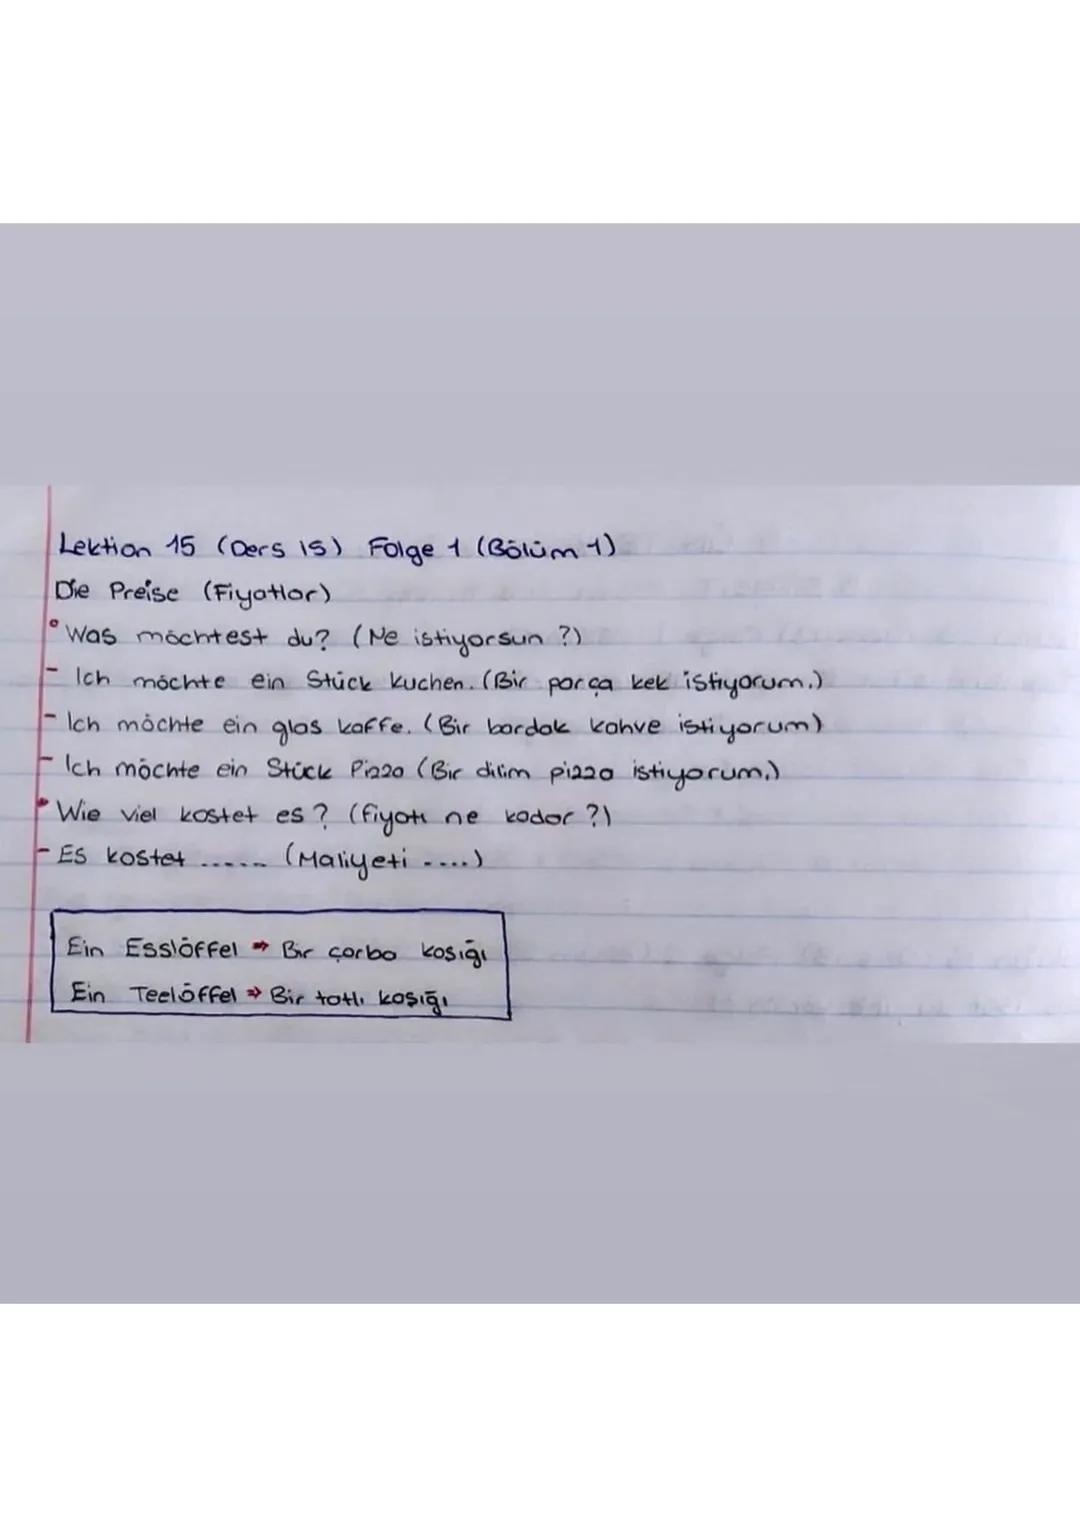 Lektion 15 (Ders 15) Folge 1 (Bölüm 1)
Die Preise (Fiyatlar)
• Was möchtest du? (Ne istiyorsun ?)
- Ich möchte ein Stück Kuchen. (Bir parça kek istiyorum.)
- Ich möchte ein glas kaffe. (Bir bardak kahve istiyorum)
- Ich möchte ein Stück Pizza (Bir dilim pizza istiyorum.)
• Wie viel kostet es? (fiyatı ne kadar ?)
- Es kostet ...... (Maliyeti ....)
Ein Esslöffel ⇒ Bir çorba kaşığı
Ein Teelöffel ⇒ Bir tatlı kaşığı